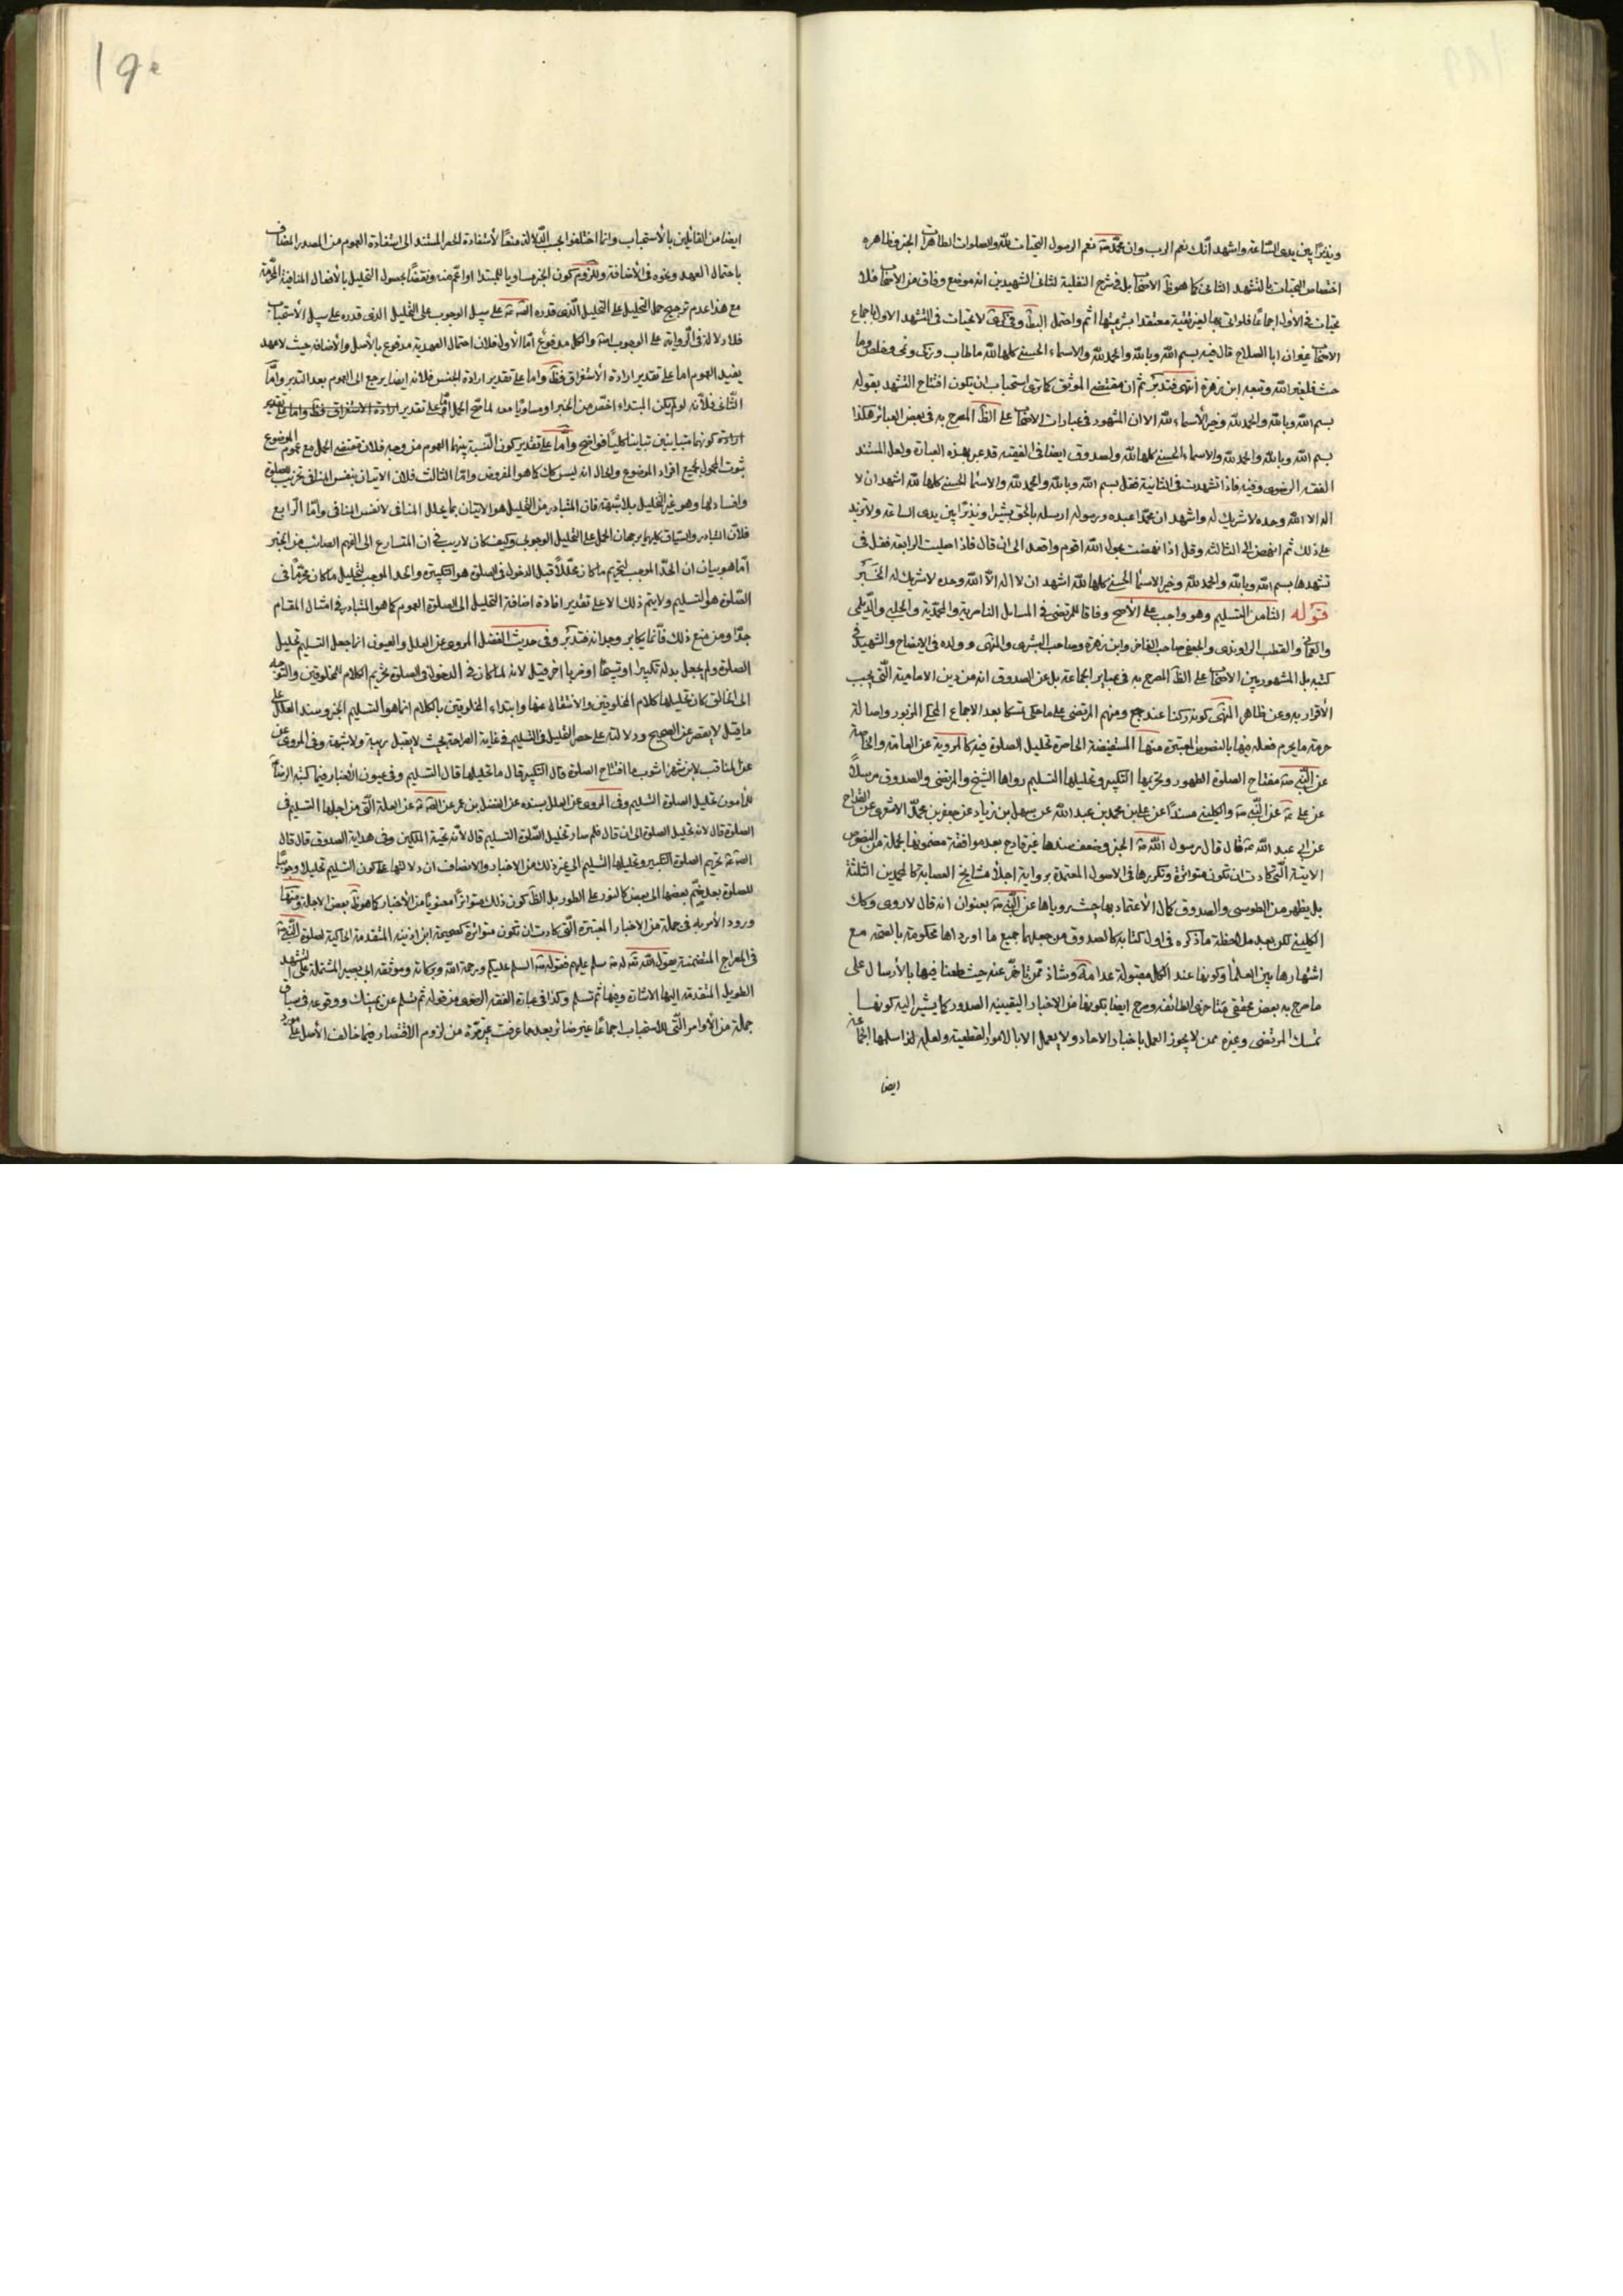 ونذيرا بين يدى الساعة واشهد انك نعم الرب وان محمد ص نعم الرسول التحيات لله والصلوات الطاهرات الخبر وظاهره
اختصاص التحيات بالتشهد الثانى كما هو ظ الاصحاب بل فى شرح النفلية لثانى الشهيدين انه موضع وفاق من الاصحاب فلا
تحيات فى الأول اجماعا فلو اتى بها لغير تقية معتقدا شرعيتها اثم واحتمل البط وفى كرى لا تحيات فى التشهد الاول باجماع
الاصحاب غير ان ابا الصلاح قال فيه بسم الله وبالله والحمد لله والاسماء الحسنى كلها لله ما طاب وزكى ونمى وخلص وما
خبث فلغير الله وتبعه ابن زهرة انتهى فتدبر ثم ان مقتضى الموثق كما ترى استحباب ان يكون افتتاح التشهد بقوله
بسم الله وبالله والحمد لله وخير الأسماء لله الا ان المشهود فى عبارات الاصحاب على الظ المصرح به فى بعض العبائر هكذا
بسم الله وبالله والحمد لله والاسماء الحسنى كلها لله والصدوق ايضا فى الفقيه قد عبر بهذه العبارة ولعل المستند
الفقه الرضوى وفيه فاذا تشهدت فى الثانية فقل بسم الله وبالله والحمد لله والاسماء الحسنى كلها لله اشهد ان لا
اله الا الله وحده لا شريك له واشهد ان محمدا عبده ورسوله ارسله بالحق بشيرا ونذيرا بين يدى الساعة ولا تزيد
على ذلك ثم انهض الى الثالثة وقل اذا نهضت بحول الله اقوم واقعد الى ان قال فاذا صليت الرابعة فقل فى
تشهدها بسم الله وبالله والحمد لله وخير الاسماء الحسنى كلها لله اشهد ان لا اله الا الله وحده لا شريك له الخبر
قوله الثامن التسليم وهو واجب على الأصح وفاقا للمرتضى فى المسايل الناصرية والمحمدية والحلبى والديلمى
والعمانى والقطب الراوندى والجعفى صاحب الفاخر وابن زهرة وصاحب البشرى والمنتهى وولده فى الايضاح والشهيد فى
كتبه بل المشهور بين الاصحاب على الظ المصرح به فى عباير الجماعة بل عن الصدوق انه من دين الامامية التى يجب
الأقرار به وعن ظاهر المنتهى كونه ركنا عند جمع ومنهم المرتضى على ما حكى تمسكا بعد الاجماع المحكى المزبور واصالة
حرمة ما يحرم فعله فيها بالنصوص المعتبرة منها المستفيضة الحاصرة تحليل الصلوة فيه كالمروية عن العامة والخاصة
عن النبى ص مفتاح الصلوة الطهور وتحريمها التكبير وتحليلها التسليم رواها الشيخ والمرتضى والصدوق مرسلا
عن على ع عن النبى ص والكلينى مسندا عن على بن محمد بن عبد الله عن سهل بن زياد عن جعفر بن محمد الاشعرى عن القداح
عن ابى عبد الله ع قال قال رسول الله ص الخبر وضعف سندها غير قادح بعد موافقة مضمونها بجملة من النصوص
الاتية التى كادت ان تكون متواترة وتكررها فى الاصول المعتمدة برواية اجلاء مشايخ العصابة كالمحمدين الثلثة
بل يظهر من الطوسى والصدوق كمال الأعتماد بها حيث رويا ها عن النبى ص بعنوان انه قال لا روى وكك
الكلينى لكن بعد ملاحظة ما ذكره فى اول كتابه كالصدوق من جعلهما جميع ما اورداها محكومة بالصحة مع
اشتهارها بين العلماء وكونها عند الكل مقبولة عدا مه وشاذ ممن تاخر عنه حيث طعنا فيها بالأرسال على
ما صرح به بعض محققى متاخرى الطائفة وصرح ايضا بكونها من الاخبار اليقينية الصدور كما يشير اليه كونها
تمسك المرتضى وغيره ممن لا يجوز العمل باخبار الاحاد ولا يعمل الا بالامور القطعية ولعله لذا سلمها الجماعة
ايضا
190
ايضا من القائلين بالاستحباب وانما اختلفوا بحسب الدلالة منعا لأستفادة الحصر المستند الى استفادة العموم من المصدر المضاف
باحتمال العهد ونحوه فى الأضافة وللزوم كون الخبر مساويا للمبتدا او اعم منه ونقضا بحصول التحليل بالأفعال المنافية المحرمة
مع هذا عدم ترجيح حمل التحليل على التحليل الذى قدره الش ع على سبيل الوجوب على التحليل الذى قدره على سبيل الأستحباب
فلا دلالة فى الرواية على الوجوب والكل مدفوع اما الأول فلان احتمال العهدية مدفوع بالأصل والأضافة حيث لا عهد
يفيد العموم اما على تقدير ارادة الأستغراق فظ واما على تقدير ارادة الجنس فلانه ايضا يرجع الى العموم بعد التدبر واما
الثانى فلانه لو لم يكن المبتداء اخص من الخبر او مساويا معه لما صح الحمل اما على تقدير ارادة الاستغراق فظ واما على تقدير
ارادة كونهما متباينين تباينا كليا فواضح واما على تقدير كون النسبة بينهما العموم من وجه فلان مقتضى الحمل مع عموم الموضوع
ثبوت المحمول لجميع افراد الموضوع والحال انه ليس كك كما هو المفروض واما الثالث فلان الاتيان بنفس المنافى تخريب للصلوة
وافساد لها وهو غير التحليل بلا شبهة فان المتبادر من التحليل هو الاتيان بما يحلل المنافى لا نفس المنافى واما الرابع
فلان التبادر والسياق كليهما يرجحان الحمل على التحليل الوجوبى وكيف كان لا ريب فى ان المتسارع الى الفهم الصائب من الخبر
اما هو بيان ان الحد الموجب لتحريم ما كان محللا قبل الدخول فى الصلوة هو التكبيرة والحد الموجب لتحليل ما كان محرما فى
الصلوة هو التسليم ولا يتم ذلك الا على تقدير افادة اضافة التحليل الى الصلوة العموم كما هو المتبادر فى امثال المقام
جدا ومن منع ذلك فانما يكابر وجدانه فتدبر وفى حديث الفضل المروى عن العلل والعيون انما جعل التسليم تحليل
الصلوة ولم يجعل بدله تكبيرا او تسبيحا او ضربا اخر قيل لانه لما كان فى الدخول فى الصلوة تحريم الكلام للمخلوقين والتوجه
الى الخالق كان تحليلها كلام المخلوقين والانتقال عنها وابتداء المخلوقين بالكلام انما هو التسليم الخبر وسند العلل على
ما قيل لا يقصر عن الصحيح ودلالته على حصر التحليل فى التسليم فى غاية الصراحة بحيث لا يقبل ريبة ولا شبهة وفى المروى عن
عن المناقب لابن شهراشوب ما افتتاح الصلوة قال التكبير قال ما تحليلها قال التسليم وفى عيون الأخبار فيما كتبه الرضا ع
للمأمون تحليل الصلوة التسليم وفى المروى عن العلل بسنده عن المفضل بن عمر عن الص ع عن العلة التى من اجلها التسليم فى
الصلوة قال لانه تحليل الصلوة الى ان قال فلم صار تحليل الصلوة التسليم قال لأنه تحية الملكين وفى هداية الصدوق قال قال
الص ع تحريم الصلوة التكبير وتحليلها التسليم الى غير ذلك من الاخبار والانصاف ان دلالتها على كون التسليم تحليلا وجوبيا
للصلوة بعد ضم بعضها الى بعض كالنور على الطور بل الظ كون ذلك متواترا معنويا من الأخبار كما هو ظ بعض الاجلة ومنها
ورود الأمر به فى جملة من الاخبار المعتبرة التى كادت ان تكون متواترة كصحيحة ابن اذينه المتقدمة الحاكية لصلوة النبى ص
فى المعراج المتضمنة بقول الله تع له ص سلم عليهم فقوله ص السلم عليكم ورحمة الله وبركاته وموثقة ابى بصير المشتملة على التشهد
الطويل المتقدمة اليها الاشارة وفيها ثم تسلم وكذا فى عبارة الفقه الرضوى من قوله ثم سلم عن يمينك ووقوعه فى سياق
جملة من الأوامر التى للاستحباب اجماعا غير ضائر بعد ما عرفت غير مرة من لزوم الاقتصار فيما خالف الأصل على مورد